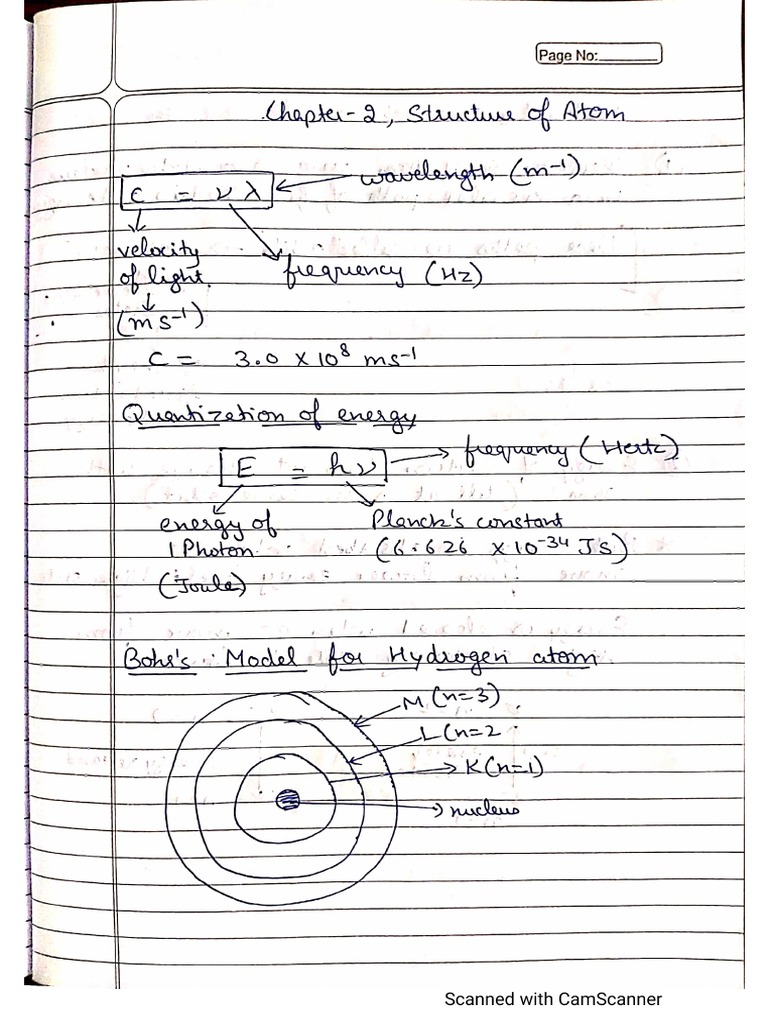 Page No:
Chapter-2, Structure of Atom
c = ν λ
wavelength (m⁻¹)
velocity
of light.
frequency (Hz)
(ms⁻¹)
C = 3.0 × 10⁸ ms⁻¹
Quantization of energy
E = hν
frequency (Hertz)
energy of
1 Photon
Planck's constant
(6.626 × 10⁻³⁴ JS)
(Joule)
Bohr's Model for Hydrogen atom
M (n=3)
L (n=2
K (n=1)
nucleus
Scanned with CamScanner